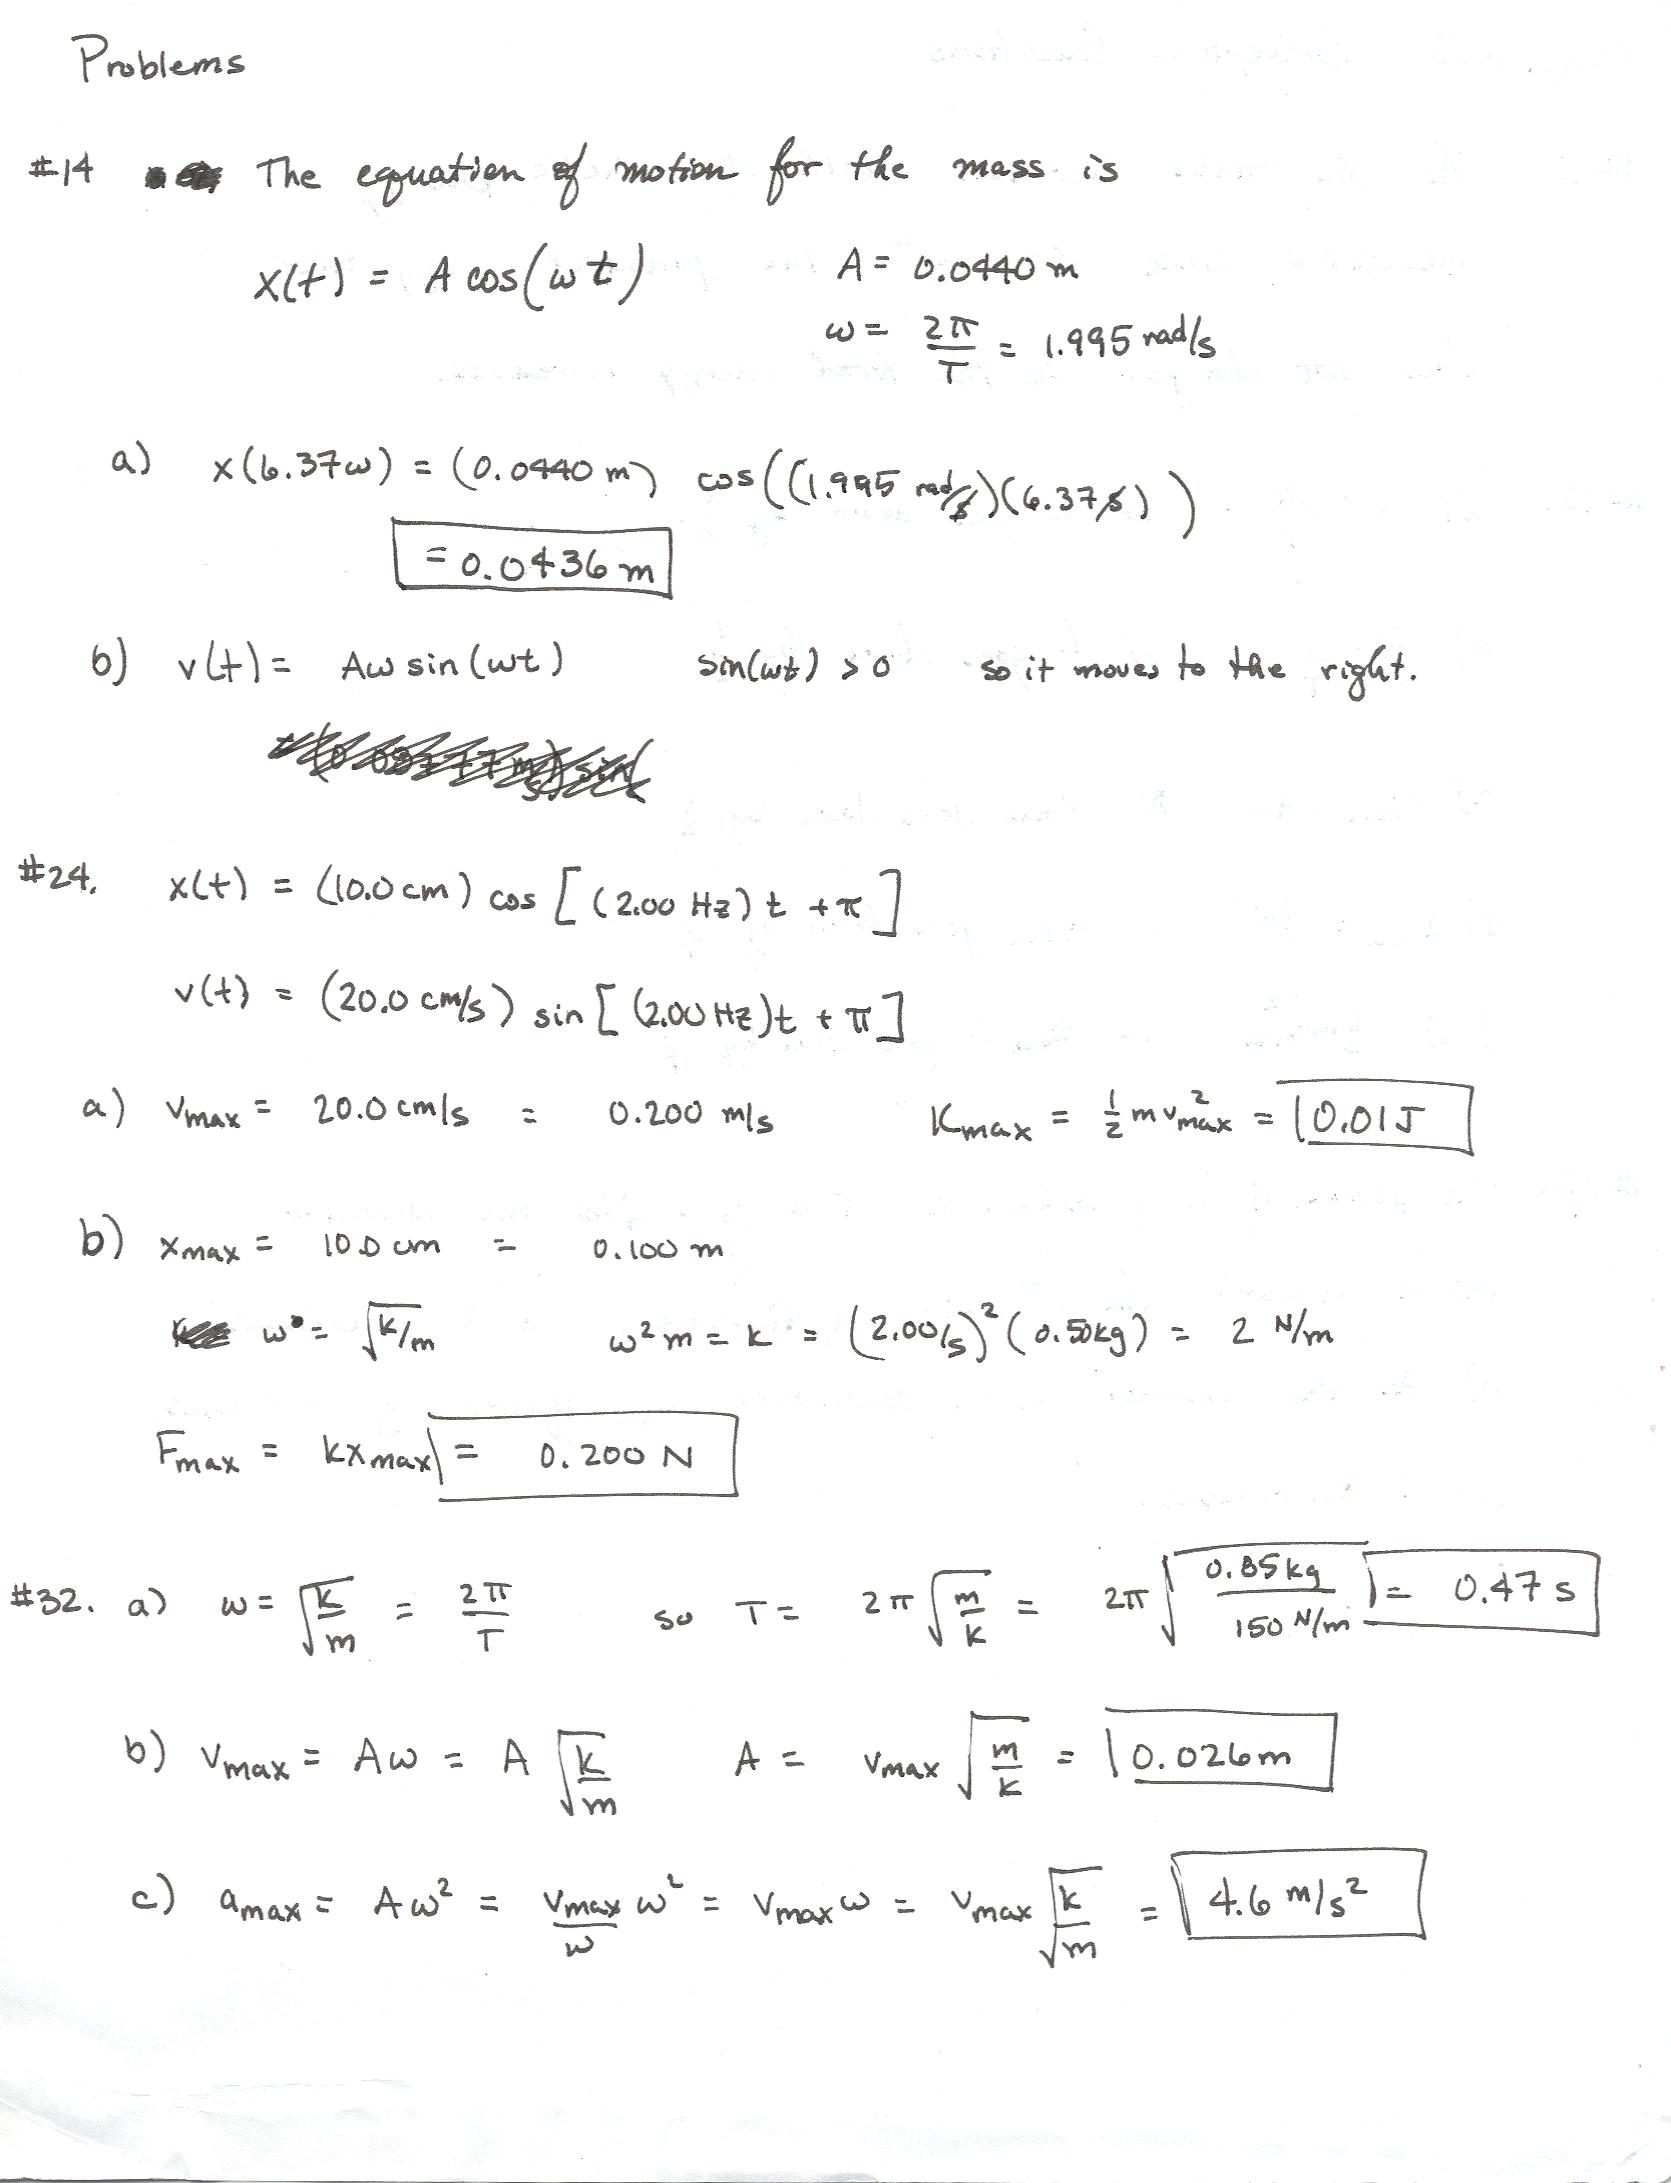 Problems
#14 The equation of motion for the mass is
x(t) = A cos(ωt) A = 0.0440 m
ω = 2π/T = 1.995 rad/s
a) x(6.37ω) = (0.0440 m) cos((1.995 rad/s)(6.37s))
= 0.0436 m
b) v(t) = Aω sin(ωt) sin(ωt) > 0 so it moves to the right.
#24. x(t) = (10.0 cm) cos [(2.00 Hz) t + π]
v(t) = (20.0 cm/s) sin [(2.00 Hz)t + π]
a) vmax = 20.0 cm/s = 0.200 m/s Kmax = ½ m v²max = 0.01 J
b) xmax = 10.0 cm = 0.100 m
ω = √k/m ω² m = k = (2.00/s)² (0.50kg) = 2 N/m
Fmax = kxmax = 0.200 N
#32. a) ω = √k/m = 2π/T so T = 2π √m/k = 2π √0.85kg/150 N/m = 0.47 s
b) vmax = Aω = A √k/m A = vmax √m/k = 0.026m
c) amax = Aω² = vmax/ω ω² = vmax ω = vmax √k/m = 4.6 m/s²